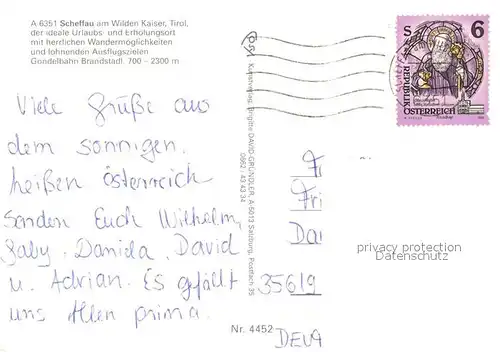 A-6351 Scheffau am Wilden Kaiser, Tirol,
der ideale Urlaubs- und Erholungsort
mit herrlichen Wandermöglichkeiten
und lohnenden Ausflugszielen
Gondelbahn Brandstadl. 700 – 2300 m
Viele Grüße aus
dem sonnigen,
heißen Österreich
senden Euch Wilhelm,
Gaby, Daniela, David
u. Adrian. Es gefällt
uns Allen prima.
Kunstverlag Brigitte DAVID-GRÜNDLER, A-5013 Salzburg, Postfach 35
0662 / 43 43 34
Nr. 4452
S 6
REPUBLIK
ÖSTERREICH
Fr
Fri
Da
35619
DEU
privacy protection
Datenschutz